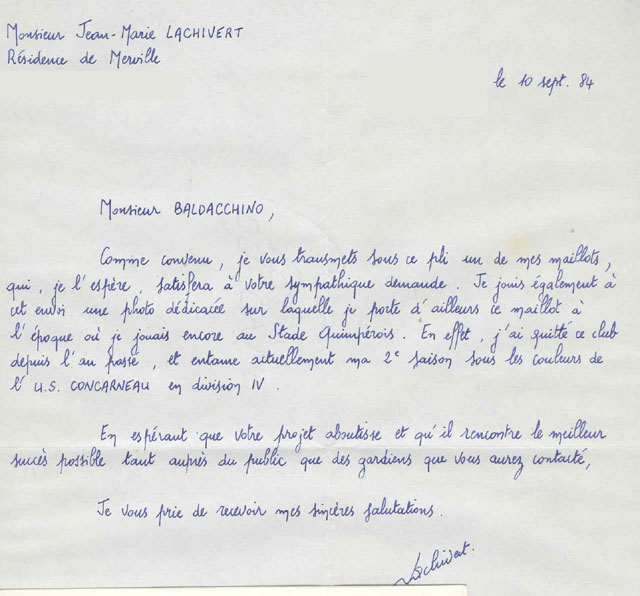 Monsieur Jean-Marie LACHIVERT
Résidence de Merville
le 10 sept. 84
Monsieur BALDACCHINO,
Comme convenu, je vous transmets sous ce pli un de mes maillots,
qui, je l'espère, satisfera à votre sympathique demande. Je jouis également à
cet envoi une photo dédicacée sur laquelle je porte d'ailleurs ce maillot à
l'époque où je jouais encore au Stade Quimpérois. En effet, j'ai quitté ce club
depuis l'an passé, et entame actuellement ma 2e saison sous les couleurs de
l'U.S. CONCARNEAU en division IV.
En espérant que votre projet aboutisse et qu'il rencontre le meilleur
succès possible tant auprès du public que des gardiens que vous aurez contacté,
Je vous prie de recevoir mes sincères salutations.
Lachivert.